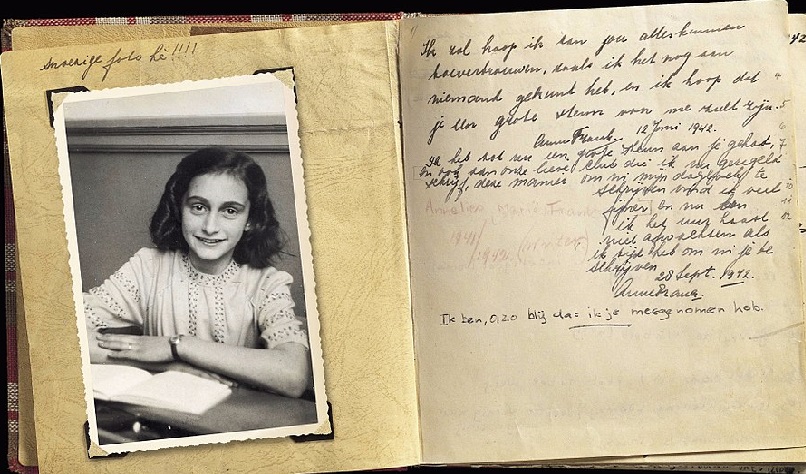 snoezige foto hé!!!!
Ik zal hoop ik aan jou alles kunnen
toevertrouwen, zoals ik het nog aan
niemand gekund heb, en ik hoop dat
je een grote steun voor me zult zijn.
Anne Frank. 12 Juni 1942.
Ik heb tot nu een grote steun aan je gehad,
en ook aan onze lieve club die ik nu geregeld
schrijf, deze manier om in mijn dagboek te
schrijven vind ik veel
fijner en nu kan
ik het uur haast
niet afwachten als
ik tijd heb om in je te
schrijven
28 Sept. 1942.
Anne Frank
Ik ben, o, zo blij dat ik je meegenomen heb.
42